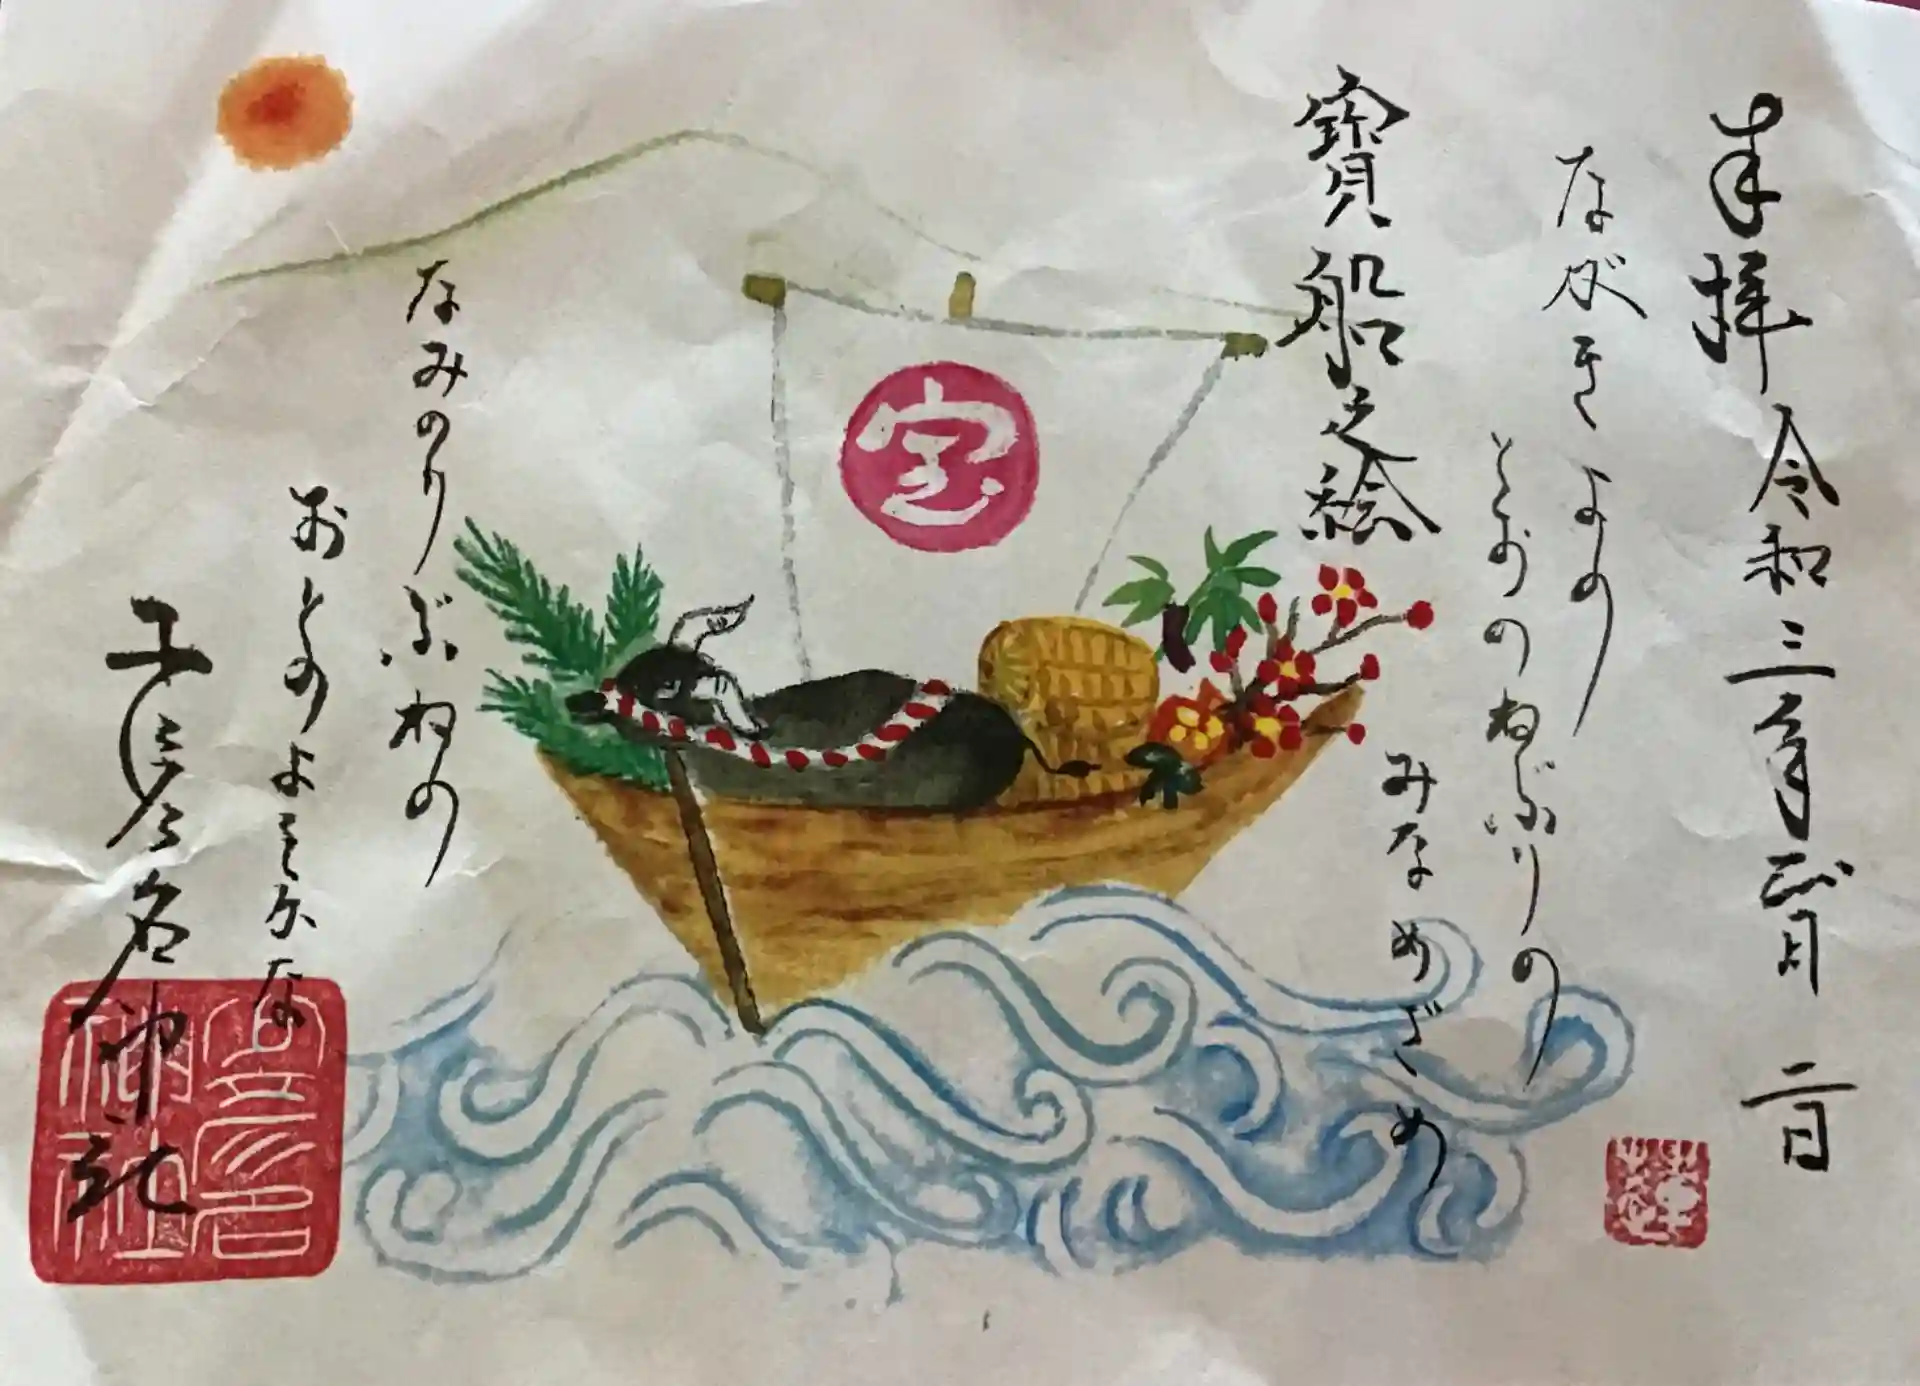 奉拝 令和三年正月二日
ながきよの
とおのねぶりの
みなめざめ
寶船之絵
宝
なみのりぶねの
おとのよきかな
彦名神社
神社